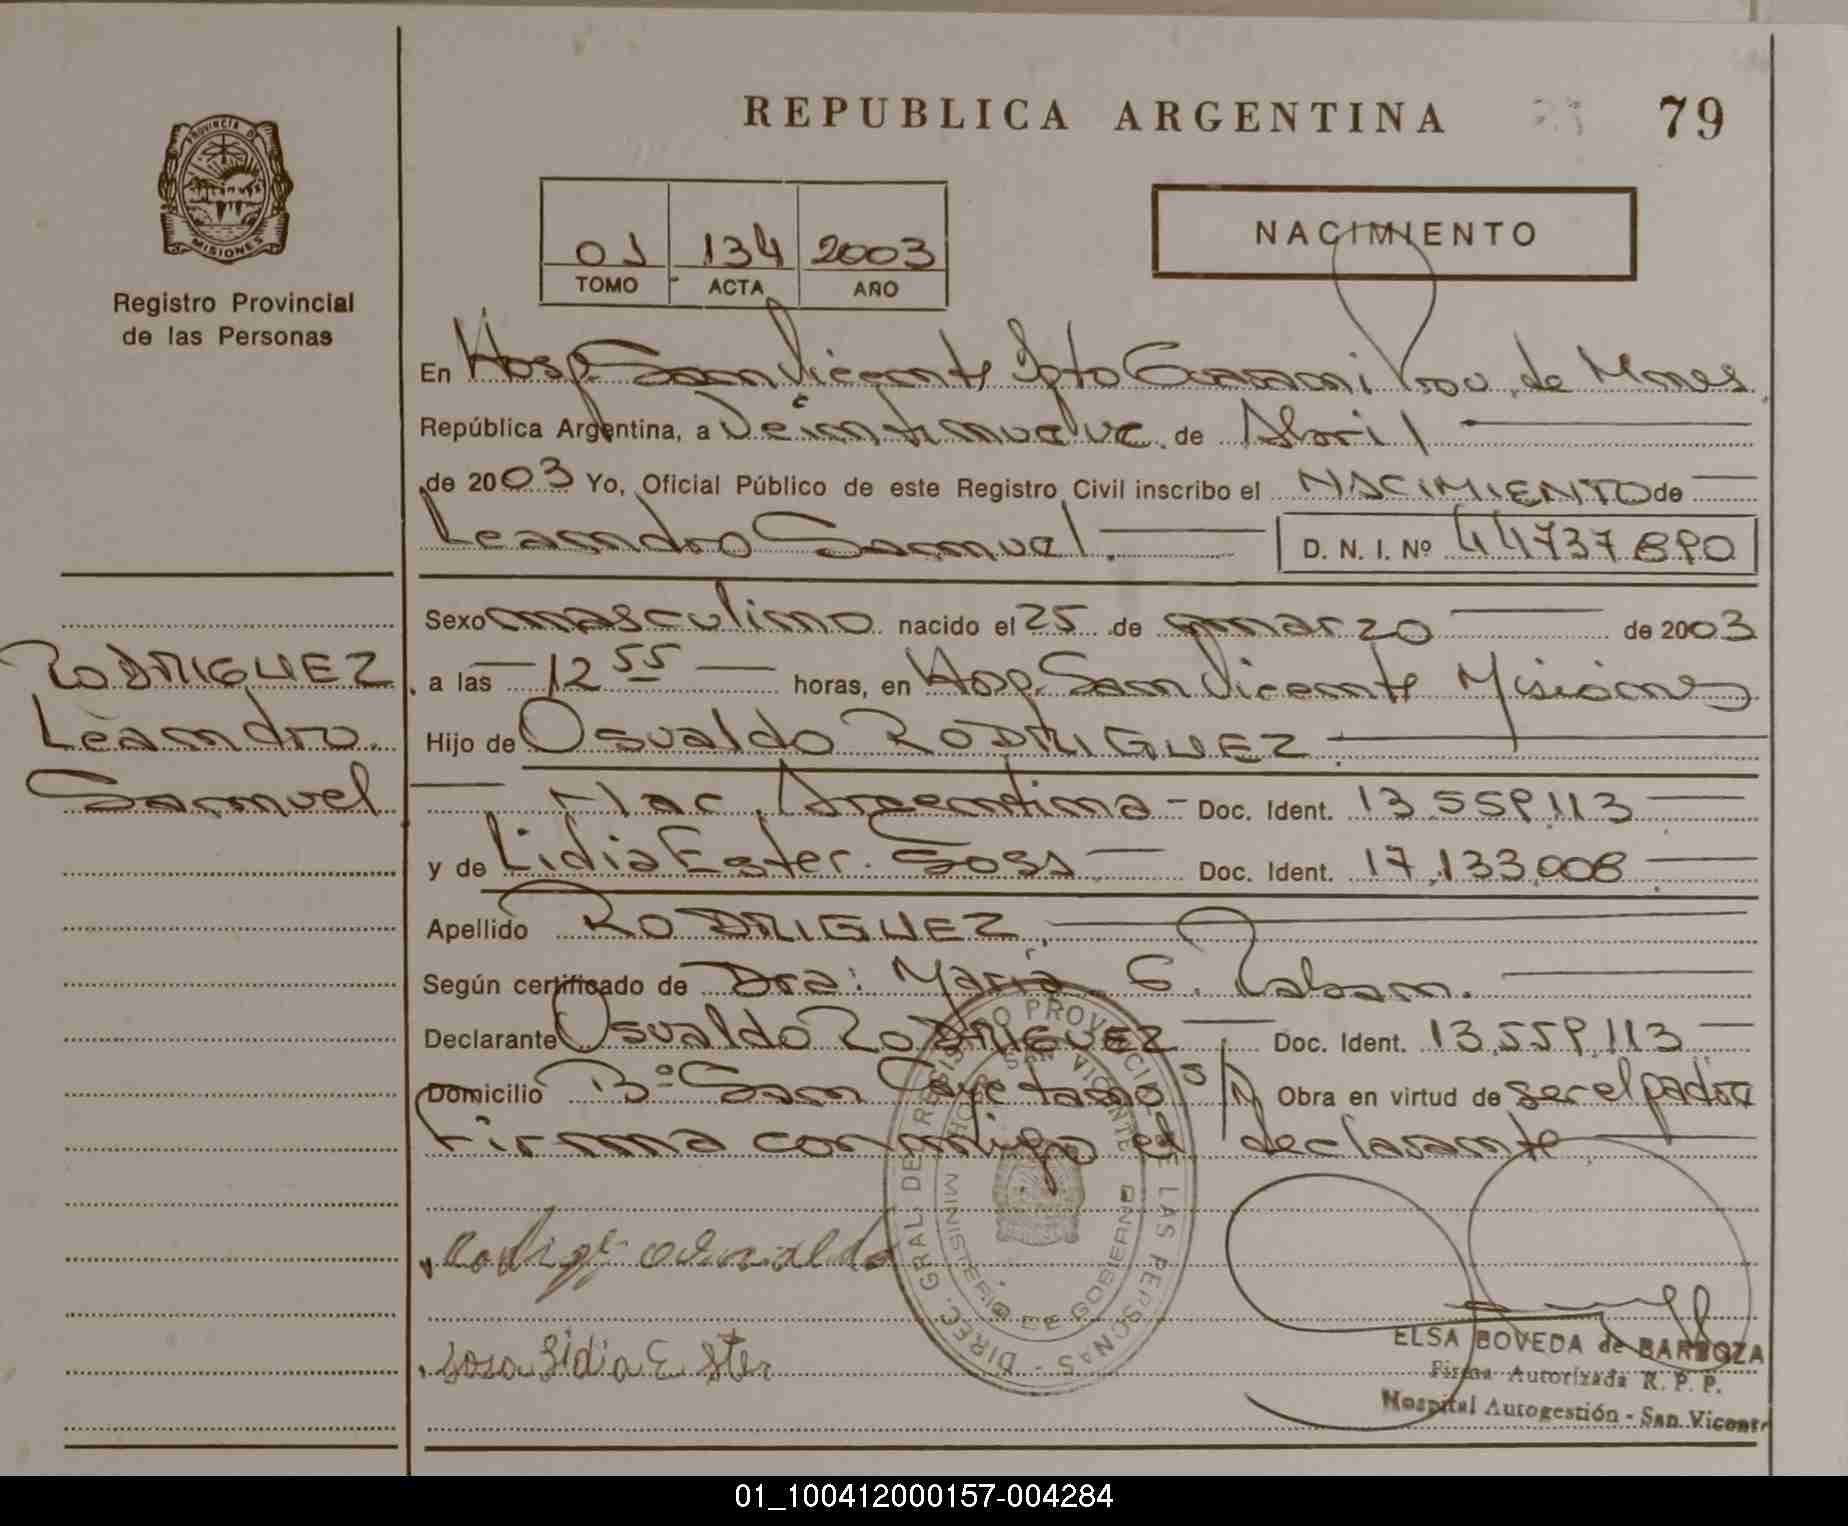 REPUBLICA ARGENTINA
79
PROVINCIA DE
MISIONES
Registro Provincial
de las Personas
01 134 2003
TOMO ACTA AÑO
NACIMIENTO
En Hosp. San Vicente Dpto Guarani Prov. de Mnes
República Argentina, a Veintinueve de Abril
de 2003 Yo, Oficial Público de este Registro Civil inscribo el NACIMIENTO de
Leandro Samuel. D. N. I. Nº 44737890
Sexo masculino nacido el 25 de marzo de 2003
a las 12 55 horas, en Hosp. San Vicente Misiones
Hijo de Osvaldo RODRIGUEZ
Nac. Argentina - Doc. Ident. 13.559.113
y de Lidia Ester Sosa Doc. Ident. 17.133.008
Apellido RODRIGUEZ
Según certificado de Dra: Maria G.
Declarante Osvaldo RODRIGUEZ Doc. Ident. 13.559.113
Domicilio Bº San Cayetano S/N Obra en virtud de ser el padre
Firma conmigo el declarante
RODRIGUEZ
Leandro
Samuel
DIREC. GRAL. DE REGISTRO PROVINCIAL DE LAS PERSONAS
SAN VICENTE
MINISTERIO DE GOBIERNO
osvaldo
sosa Lidia Ester
ELSA BOVEDA de BARBOZA
Firma Autorizada R. P. P.
Hospital Autogestión - San Vicente
01_100412000157-004284